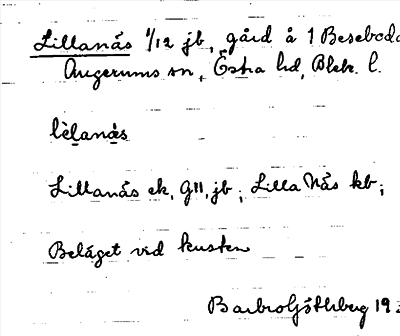 Lillanäs 1/12 jb, gård å 1 Beseboda
Augerums sn, Östra hd, Blek. l.
lèlanàs
Lillanäs ek, GII, jb; Lilla Näs kb;
Beläget vid kusten
Barbro Göthberg 19